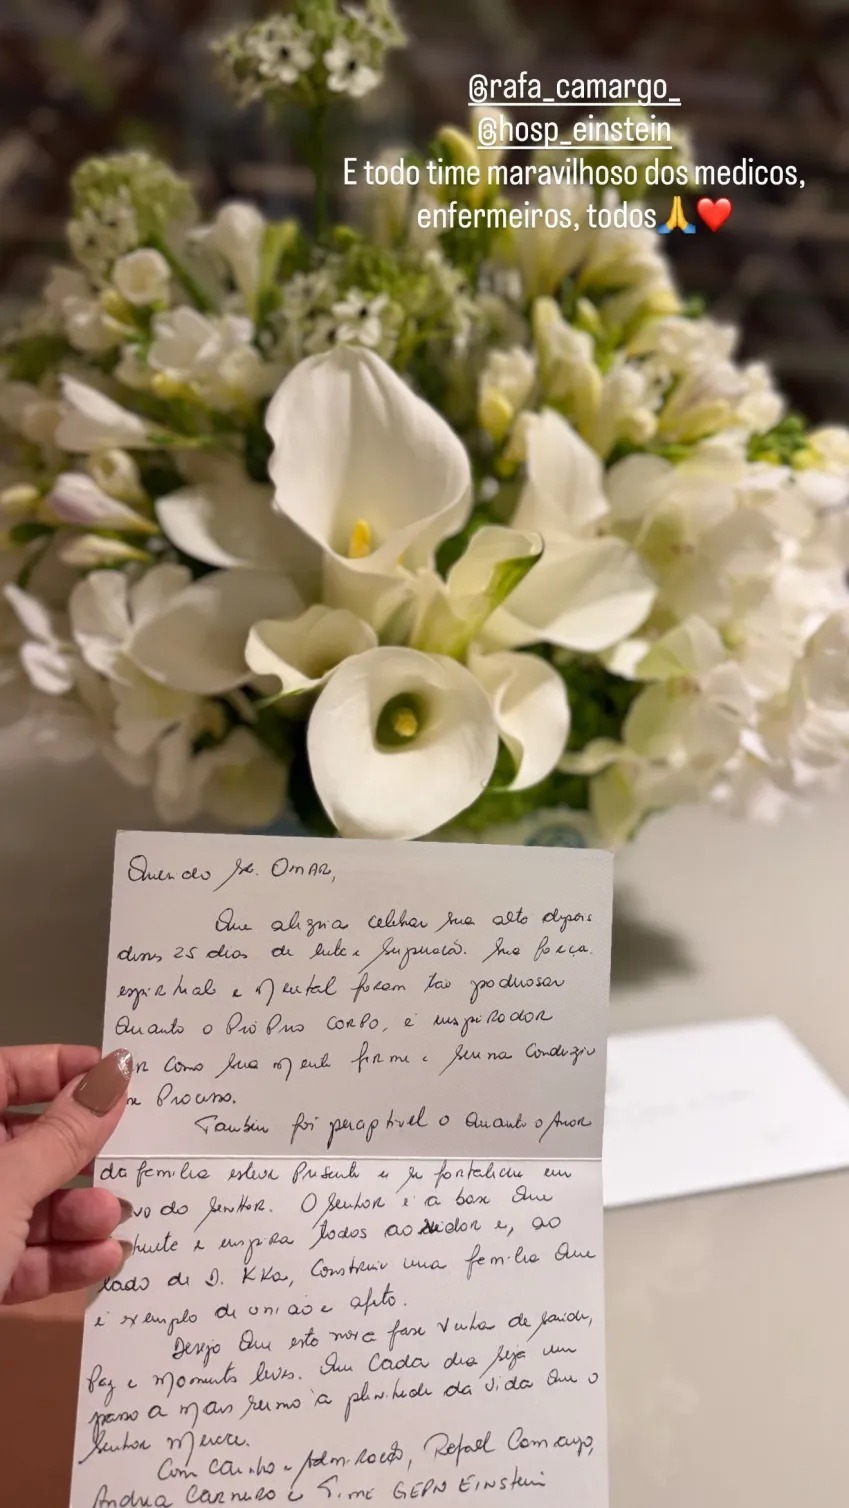 @rafa_camargo_
@hosp_einstein
E todo time maravilhoso dos medicos,
enfermeiros, todos🙏❤️
Querido Sr. OMAR,
Que alegria celebrar sua alta depois
desses 25 dias de luta e superação. Sua força
espiritual e mental foram tão poderosas
Quanto o PRÓPRIO CORPO, é inspirador
como sua mente firme e serena conduziu
Processo.
Também foi perceptível o Quanto o Amor
da família esteve Presente e se fortaleceu em
do Senhor. O Senhor é a base Que
e inspira todos ao redor e, ao
lado de D. KKa, Construiu uma família Que
é exemplo de união e afeto.
Desejo Que esta nova fase venha de saúde,
Paz e momentos leves. Que Cada dia seja um
passo a mais rumo à plenitude da vida Que o
Senhor merece.
Com carinho e Admiração, Rafael Camargo,
Andrea CARNEIRO e Time GEPN EINSTEIN